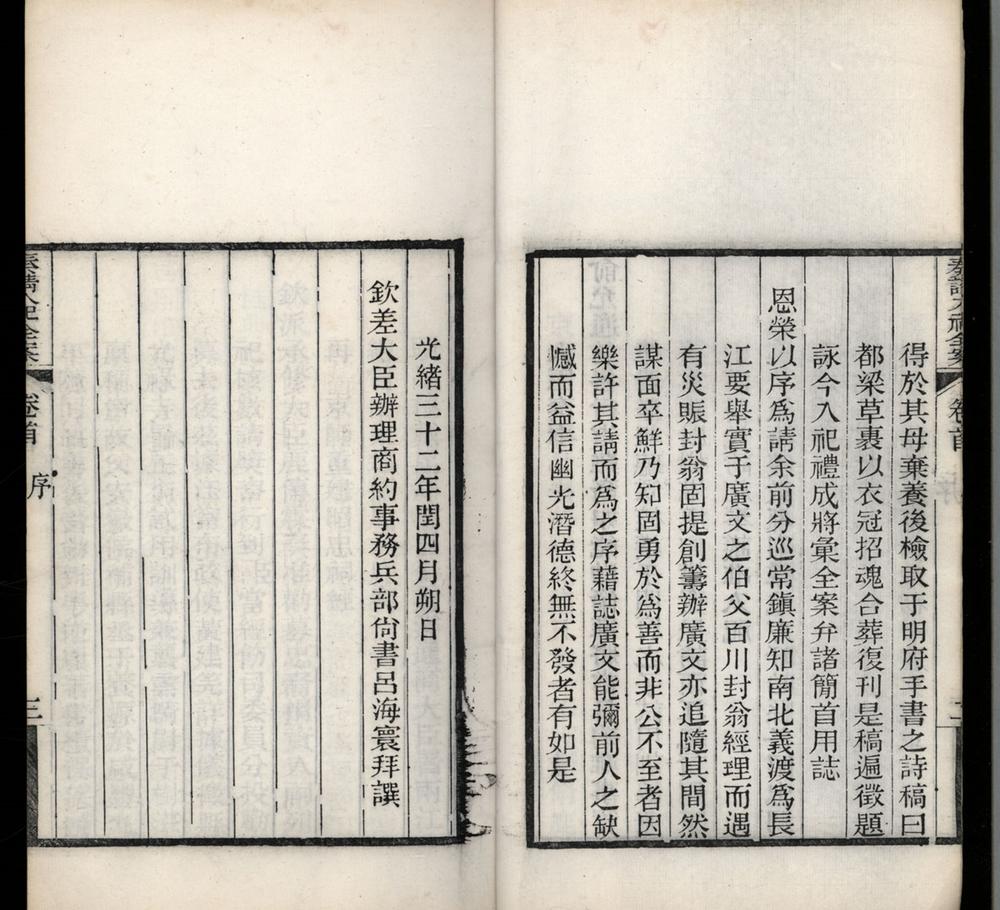 得於其母棄養後檢取于明府手書之詩稿曰
都梁草裹以衣冠招魂合葬復刊是稿遍徵題
詠今入祀禮成將彙全案弁諸簡首用誌
恩榮以序爲請余前分巡常鎮廉知南北義渡爲長
江要舉實于廣文之伯父百川封翁經理而遇
有災賑封翁固提創籌辦廣文亦追隨其間然
謀面卒鮮乃知固勇於爲善而非公不至者因
樂許其請而爲之序藉誌廣文能彌前人之缺
憾而益信幽光潛德終無不發者有如是
光緒三十二年閏四月朔日
欽差大臣辦理商約事務兵部尙書呂海寰拜譔
卷首
序
三